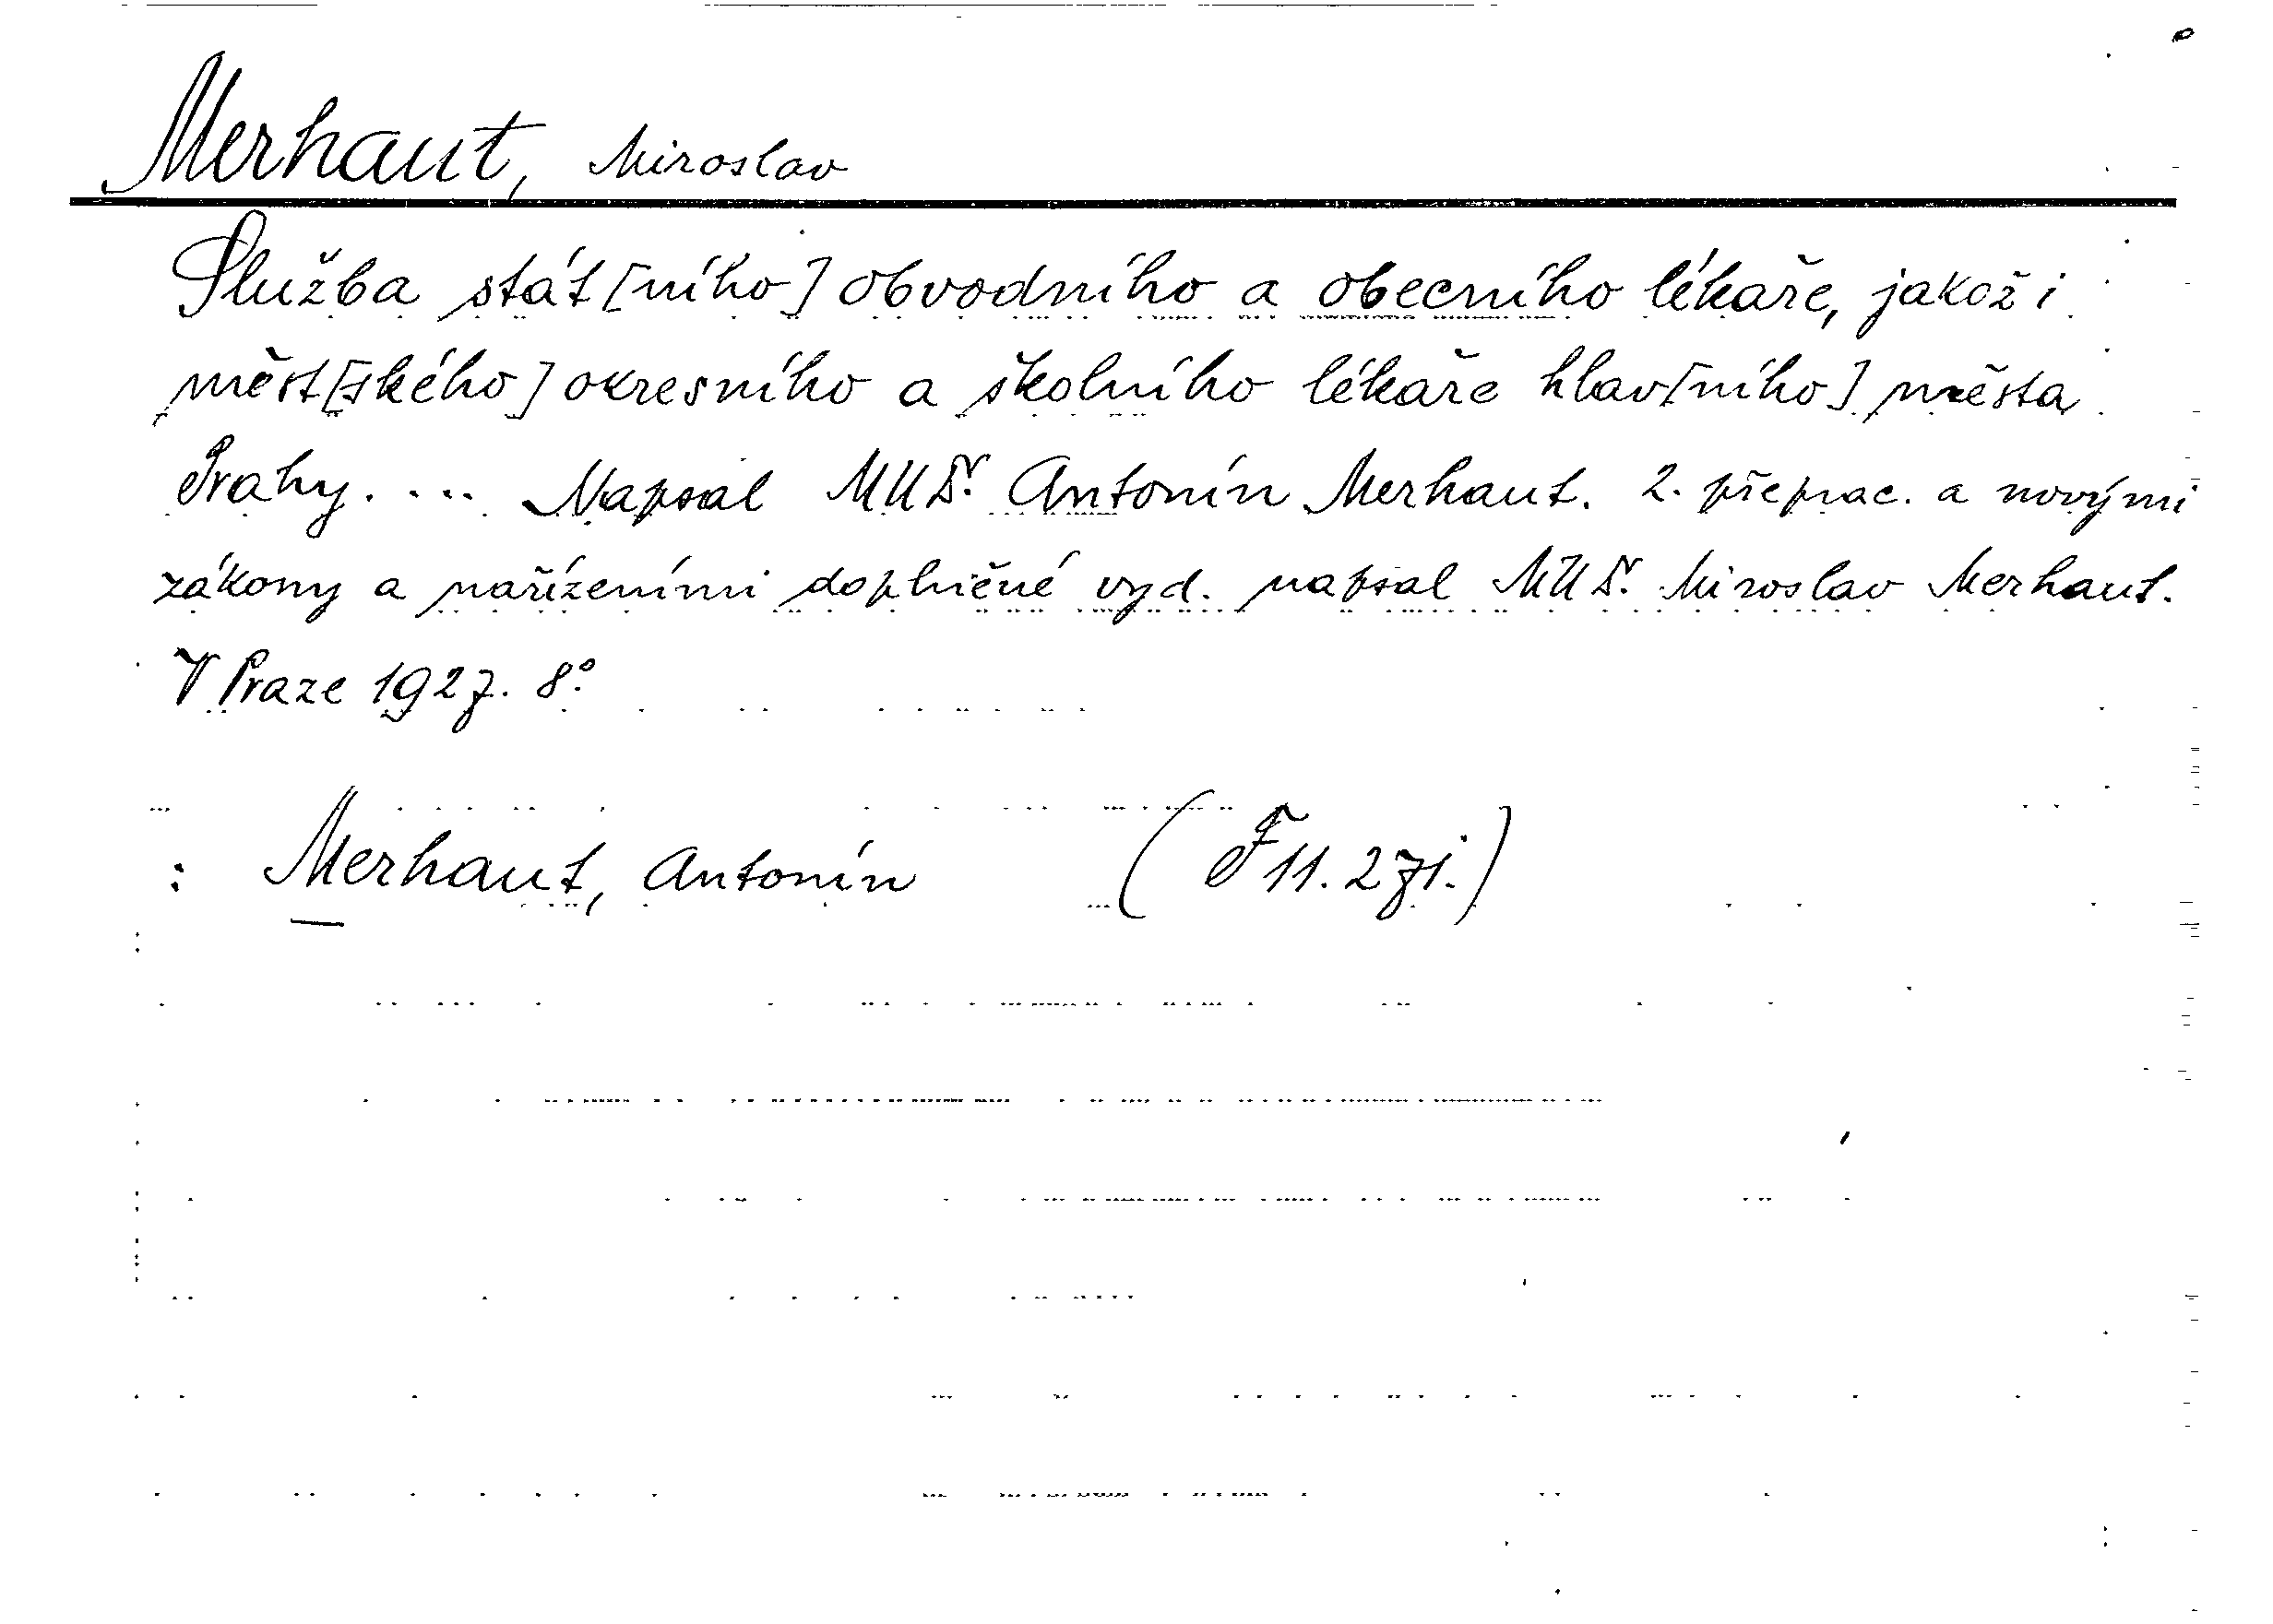 Merhaut, Miroslav
Služba stát[ního] obvodního a obecního lékaře, jakož i
měst[ského] okresního a školního lékaře hlav[ního] města
Prahy. ... Napsal MUDr. Antonín Merhaut. 2. přeprac. a novými
zákony a nařízeními doplněné vyd. napsal MUDr. Miroslav Merhaut.
V Praze 1927. 8°.
: Merhaut, Antonín (F 11. 271.)